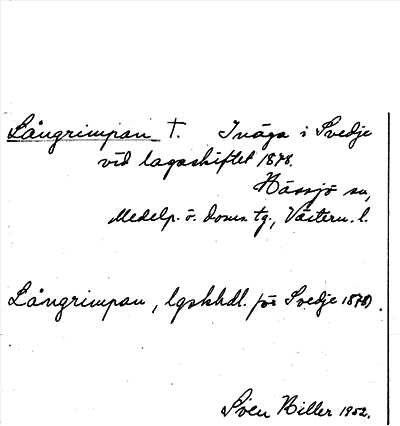 Långrimpan T. Inäga i Svedje
vid lagaskiftet 1878.
Hässjö sn,
Medelp. ö. doms. tg., Västern. l.
Långrimpan, lgskhdl. för Svedje 1878).
Sven Hiller 1952.